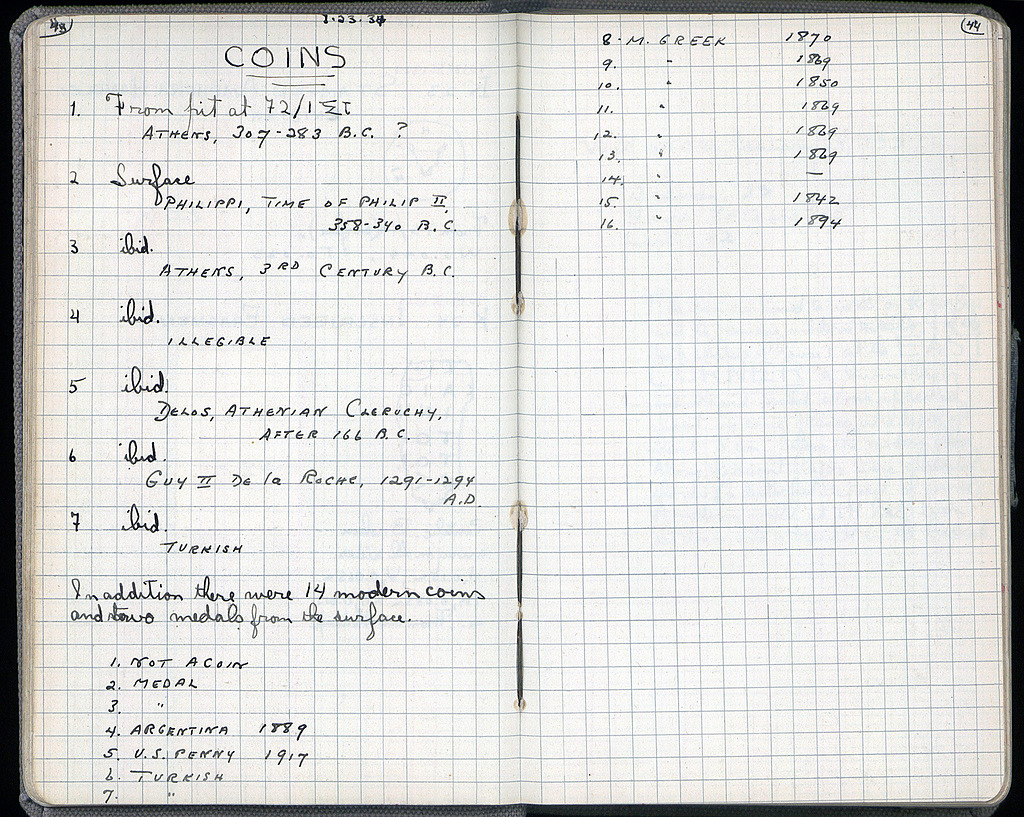 43
1.23.34
COINS
1. From pit at 72/1 ΣΤ
ATHENS, 307-283 B.C. ?
2 Surface
PHILIPPI, TIME OF PHILIP II,
358-340 B.C.
3 ibid.
ATHENS, 3RD CENTURY B.C.
4 ibid.
ILLEGIBLE
5 ibid.
DELOS, ATHENIAN CLERUCHY,
AFTER 166 B.C.
6 ibid.
GUY II De la ROCHE, 1291-1294
A.D.
7 ibid.
TURKISH
In addition there were 14 modern coins
and two medals from the surface.
1. NOT A COIN
2. MEDAL
3. "
4. ARGENTINA 1889
5. U.S. PENNY 1917
6. TURKISH
7. "
44
8. M. GREEK 1870
9. " 1869
10. " 1850
11. " 1869
12. " 1869
13. " 1869
14. " —
15. " 1842
16. " 1894